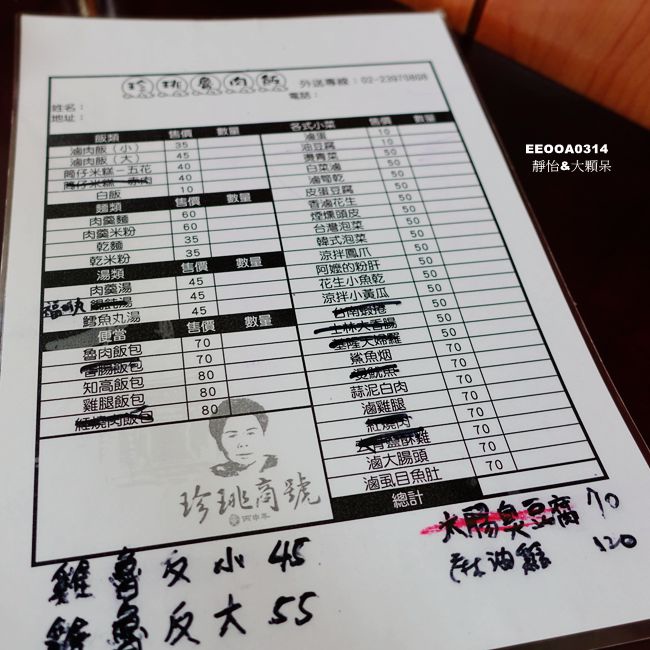 珍珧魯肉飯 外送專線：02-23970808
電話：
姓名：
地址：
飯類 售價 數量
滷肉飯（小） 35
滷肉飯（大） 45
筒仔米糕－五花 40
筒仔米糕－赤肉 40
白飯 10
麵類 售價 數量
肉羹麵 60
肉羹米粉 60
乾麵 35
乾米粉 35
湯類 售價 數量
肉羹湯 45
餛飩湯 45
鱈魚丸湯 45
便當 售價 數量
魯肉飯包 70
香腸飯包 70
知高飯包 80
雞腿飯包 80
紅燒肉飯包 80
珍珧商號
各式小菜 售價 數量
滷蛋 10
油豆腐 10
燙青菜 50
白菜滷 50
滷筍乾 50
皮蛋豆腐 50
香滷花生 50
煙燻頭皮 50
台灣泡菜 50
韓式泡菜 50
涼拌鳳爪 50
阿嬤的粉肝 50
花生小魚乾 50
涼拌小黃瓜 50
台南蝦捲 50
士林大香腸 50
基隆天婦羅 50
鯊魚烟 70
燙魷魚 70
蒜泥白肉 70
滷雞腿 70
紅燒肉 70
鹽酥雞 70
滷大腸頭 70
滷虱目魚肚 70
總計
大腸臭豆腐 70
麻油雞 120
雞魯反小 45
雞魯反大 55
EEOOA0314
靜怡&大顆呆